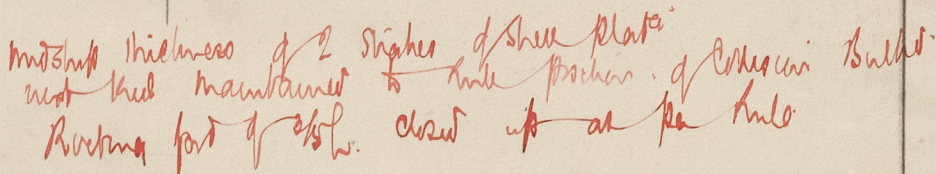 Midship thickness of 2 strakes of Shell Plate
next keel maintained to Rule position of Collision Bulkd.
Riveting ford of closed up as per Rule